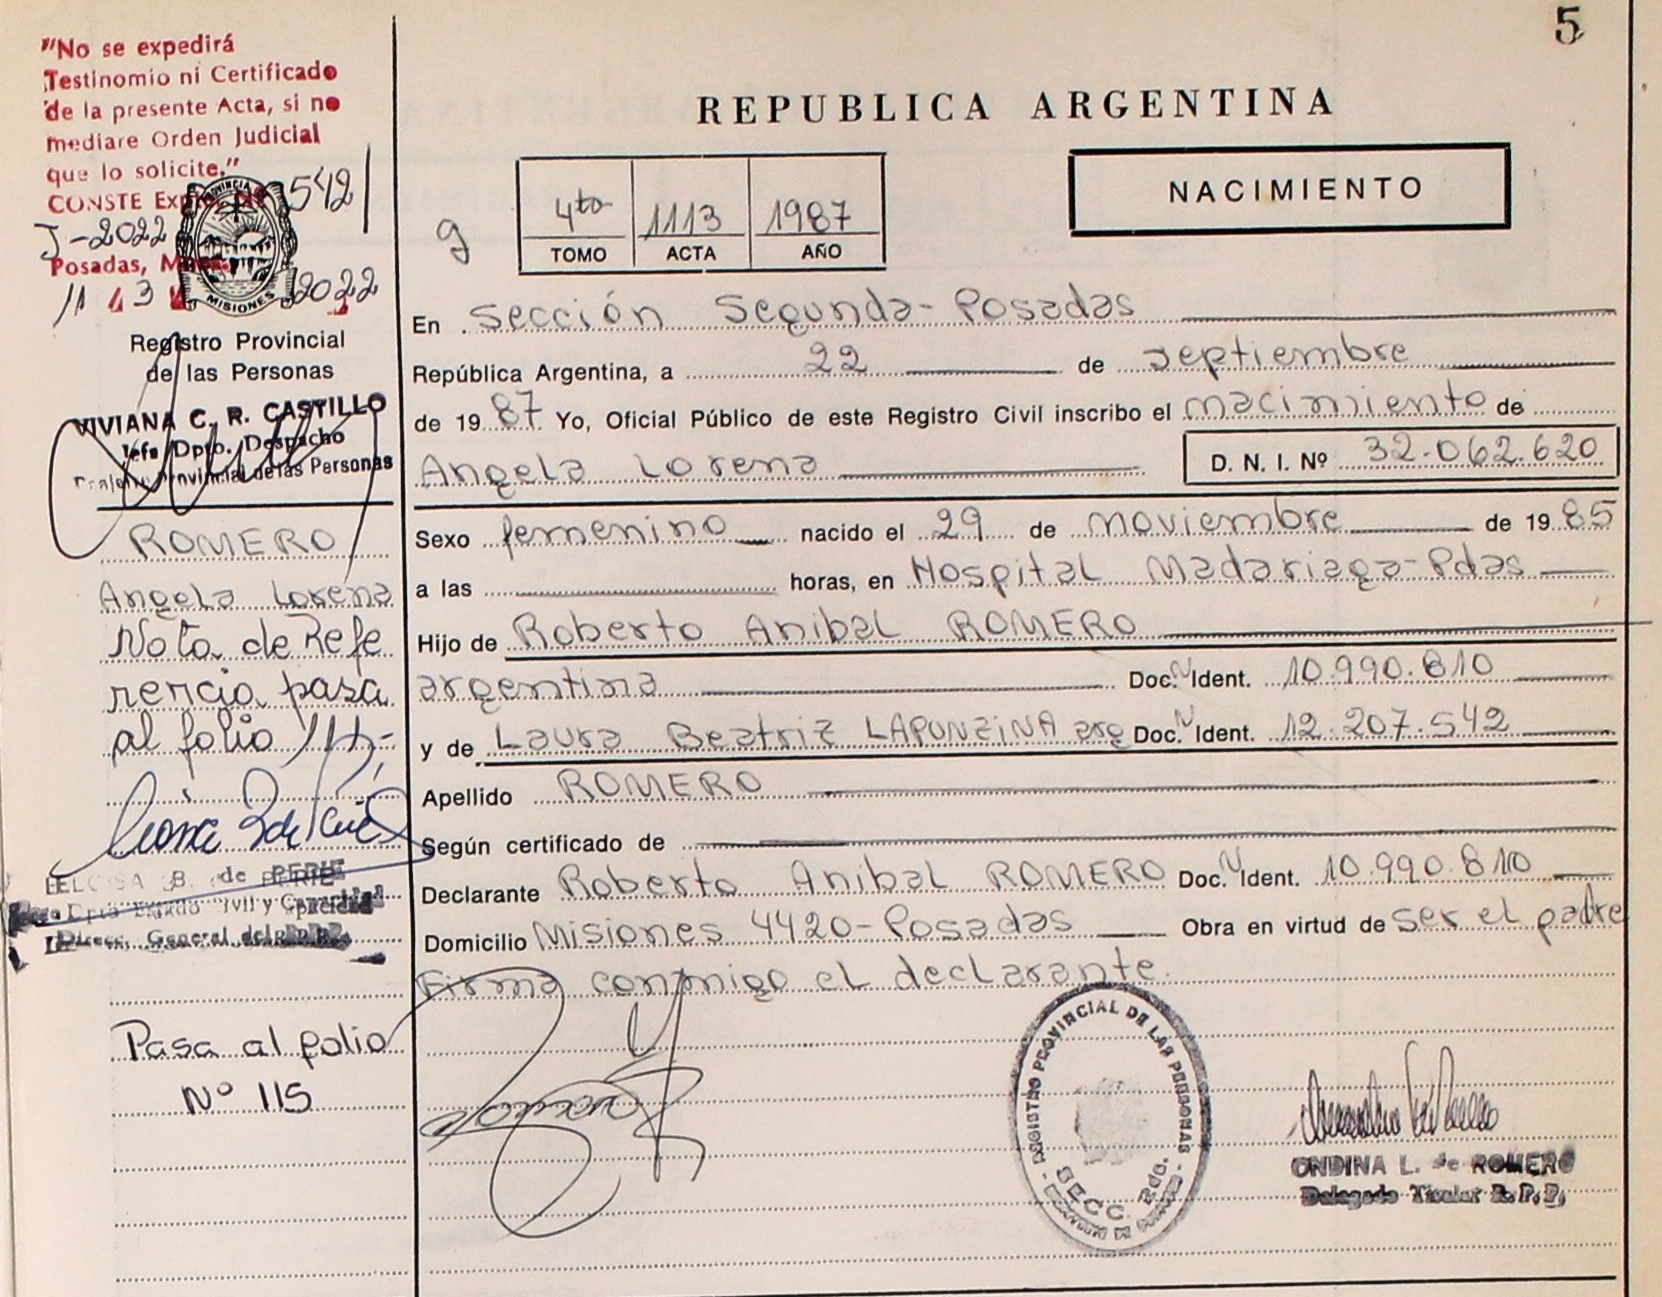 5
"No se expedirá
Testinomio ni Certificado
de la presente Acta, si no
mediare Orden Judicial
que lo solicite."
CONSTE Expte. Nº 542
J-2022
Posadas,
11 3 2022
PROVINCIA
MISIONES
Registro Provincial
de las Personas
VIVIANA C. R. CASTILLO
Jefa Dpto. Despacho
Provincial de las Personas
ROMERO
Angela Lorena
Nota de Refe
rencia pasa
al folio 114,-
B. de PERIE
Dpto Estado Civil y Capacidad
Direcc. General del
Pasa al folio
Nº 115
REPUBLICA ARGENTINA
NACIMIENTO
g
4to 1113 1987
TOMO ACTA AÑO
En Sección Segunda-Posadas
República Argentina, a 22 de septiembre
de 1987 Yo, Oficial Público de este Registro Civil inscribo el nacimiento de
Angela Lorena D. N. I. Nº 32.062.620
Sexo femenino nacido el 29 de noviembre de 1985
a las horas, en Hospital Madariaga-Pdas
Hijo de Roberto Anibal ROMERO
argentina Doc. N Ident. 10.990.810
y de Laura Beatriz LAPUNZINA arg Doc. N Ident. 12.207.542
Apellido ROMERO
Según certificado de
Declarante Roberto Anibal ROMERO Doc. N Ident. 10.990.810
Domicilio Misiones 4420-Posadas Obra en virtud de ser el padre
Firma conmigo el declarante.
REGISTRO PROVINCIAL DE LAS PERSONAS
SECC. 2da.
ONDINA L. de ROMERO
Delegado Titular R.P.P.